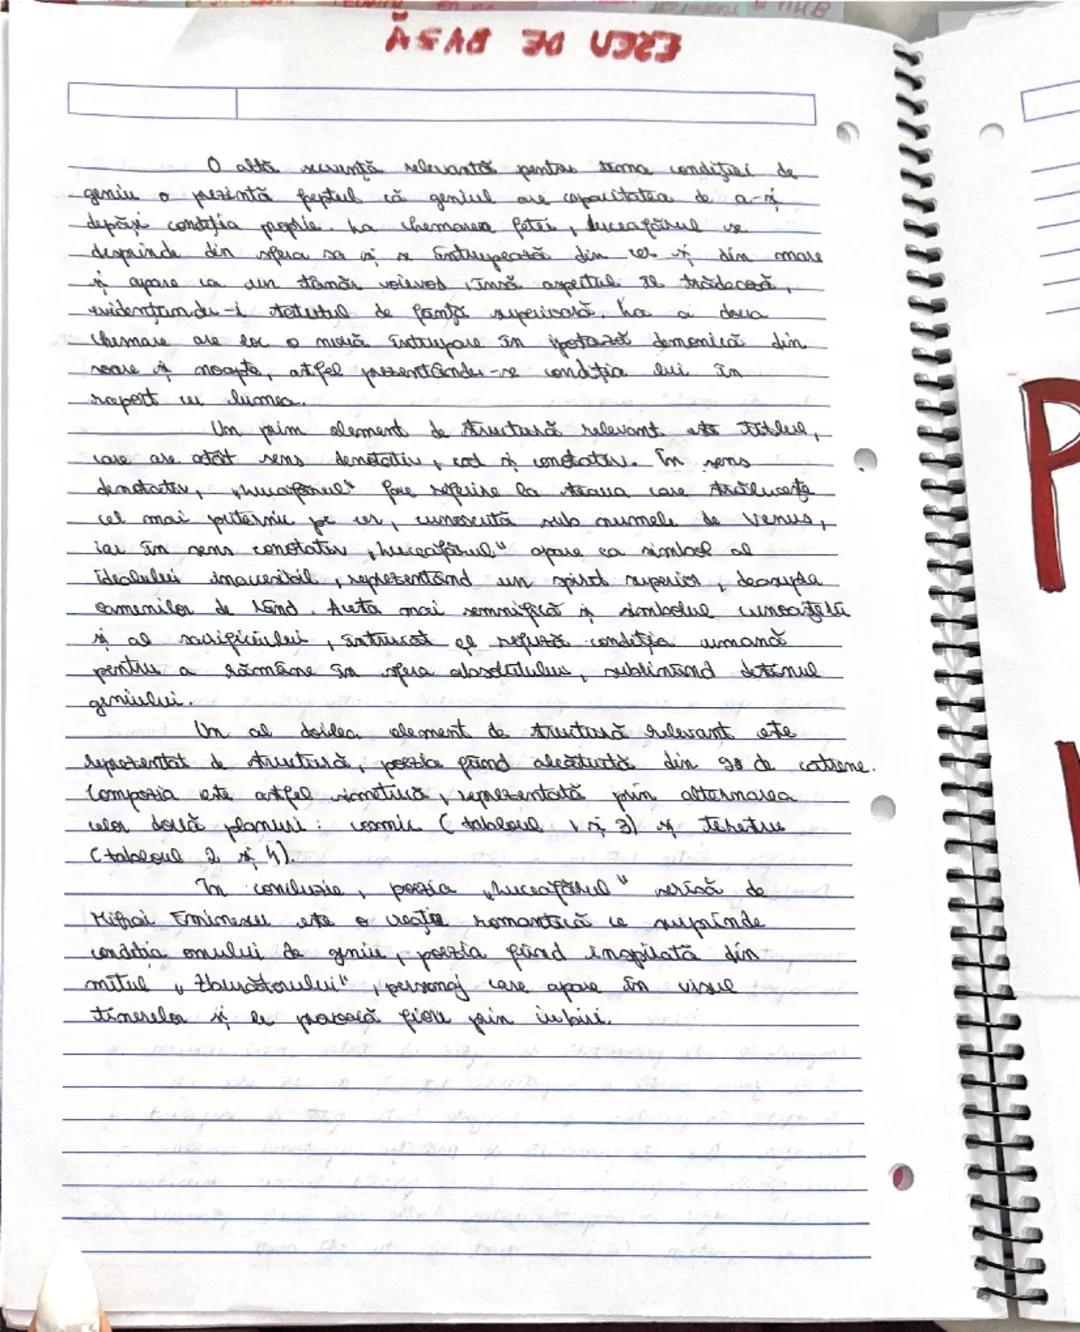 O altă secvență relevantă pentru tema condiției de
geniu o prezintă faptul că geniul are capacitatea de a-și
depăși condiția proprie. La chemarea fetei, Luceafărul se
desprinde din sfera sa și se întrupează din cer și din mare
și apare ca un tânăr voievod, însă aspectul îl trădează,
evidențiindu-i statutul de ființă superioară. La a doua
chemare are loc o nouă întrupare în ipostază demonică din
soare și noapte, astfel prezentându-se condiția lui în
raport cu lumea.
Un prim element de structură relevant este titlul,
care are atât sens denotativ, cât și conotativ. În sens
denotativ, „Luceafărul" face referire la steaua care strălucește
cel mai puternic pe cer, cunoscută sub numele de Venus,
iar în sens conotativ „Luceafărul" apare ca simbol al
idealului inaccesibil, reprezentând un spirit superior, deasupra
oamenilor de rând. Astfel mai semnifică și simbolul cunoașterii
și al sacrificiului, întrucât el refuză condiția umană
pentru a rămâne în sfera absolutului, subliniind destinul
geniului.
Un al doilea element de structură relevant este
reprezentat de structură, poezia fiind alcătuită din 98 de catrene.
Compoziția este astfel simetrică, reprezentată prin alternarea
celor două planuri: cosmic (tabloul 1 și 3) și terestru
(tabloul 2 și 4).
În concluzie, poezia „Luceafărul" scrisă de
Mihai Eminescu este o creație romantică ce surprinde
condiția omului de geniu, poezia fiind inspirată din
mitul „Zburătorului", personaj care apare în visul
tinerelor și le provoacă fiori prin iubiri.
P